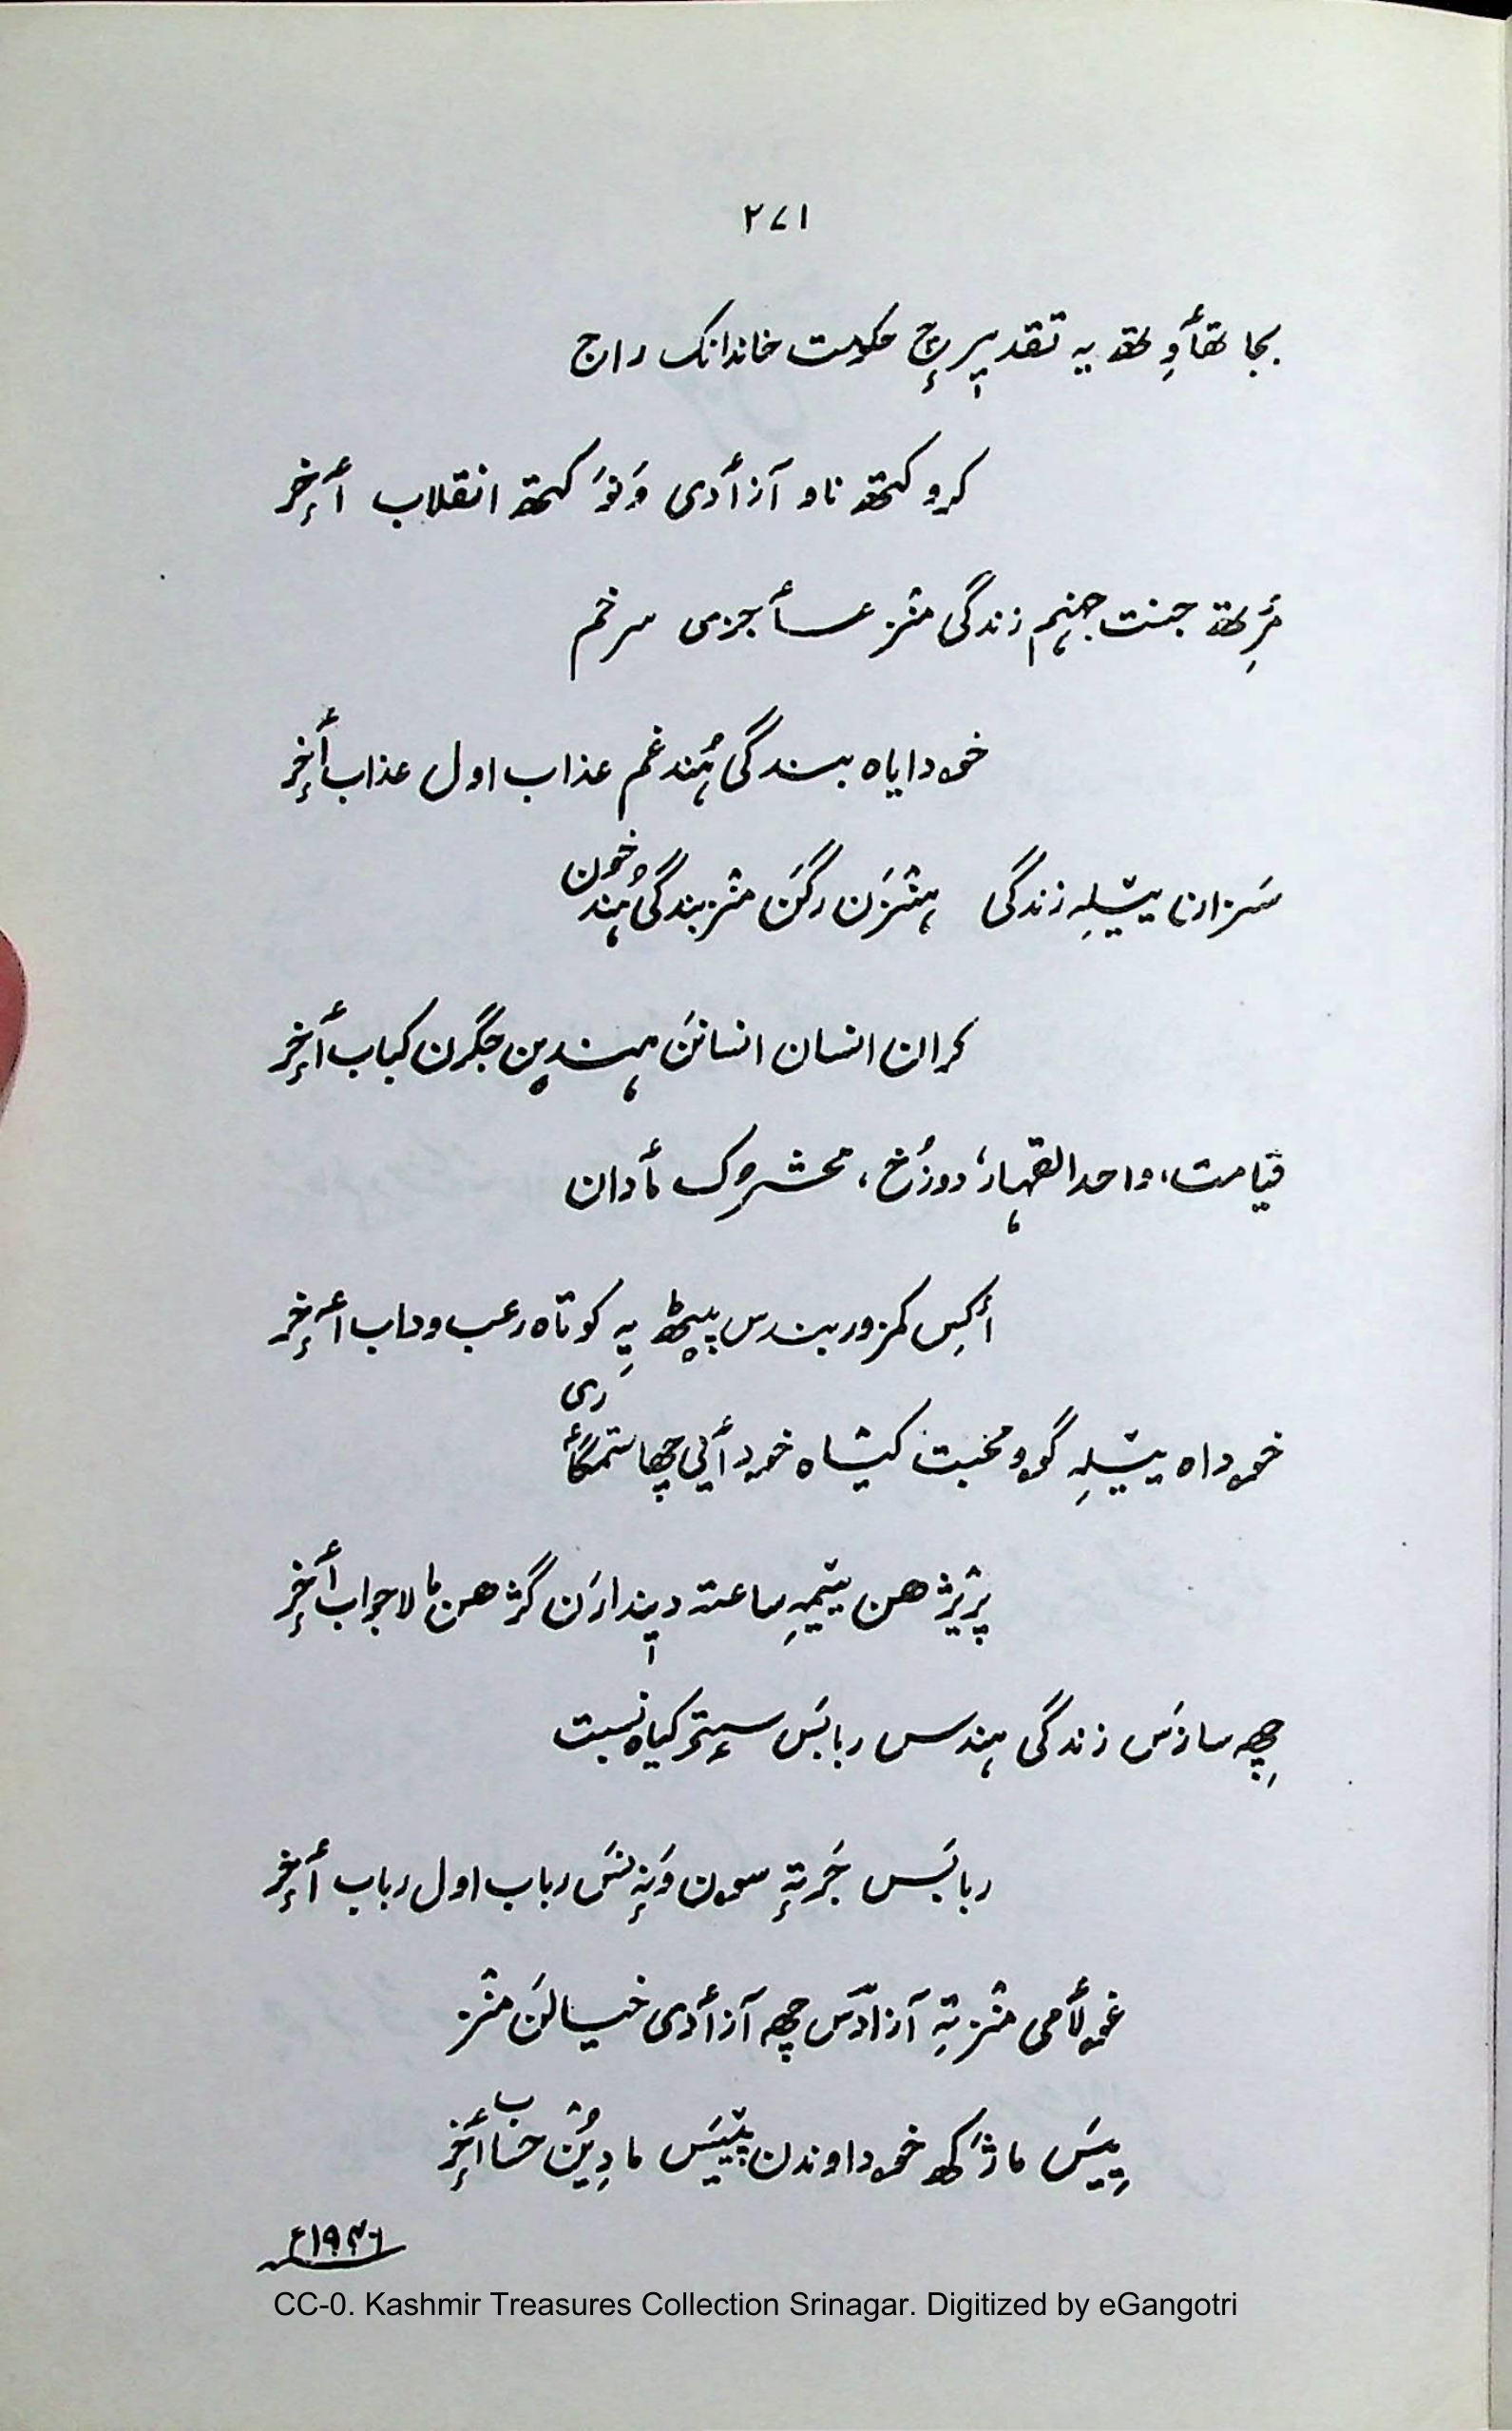 ۲۷۱
بجا تھأوِتھ یہ تقدیرٕچ حکومت خاندانک راج
کرو کتھ ناو آزأدی وَنوَ کتھ انقلاب أخٕر
مَرِتھ جنت جہنم زندگی منٛز عأجزی سرخم
خۄدایاہ بندگی ہُند غم عذاب اول عذاب أخٕر
سَزان ییٚلہِ زندگی ہنٛزَن رگَن منٛز بندگی ہُند خون
کران انسان انسانَن ہندین جگرن کباب أخٕر
قیامت، واحد القہار، دوزُخ، محشرُک مأدان
أکِس کمزور بندس پیٹھ یہِ کوتاہ رعب وداب أخٕر
خۄداہ ییٚلہِ گوو محبت کیٚاہ خۄدأیی چھا ستمگأری
پرٛیژھن ییٚمہِ ساعتہ دیندارَن گژھن ما لاجواب أخٕر
چھِہ سازَس زندگی ہندس ربابَس سیٖتۍ کیاہ نسبت
ربابَس جَرتہٕ سۄن وَنہٕ نَس رباب اول رباب أخٕر
غۄلأمی منٛز تہِ آزادَس چھہ آزأدی خیالَن منٛز
ییِیَس ما ژَکھ خۄداوندن پٚییَس ما دِیُن حساب أخٕر
۱۹۴۶ء
CC-0. Kashmir Treasures Collection Srinagar. Digitized by eGangotri